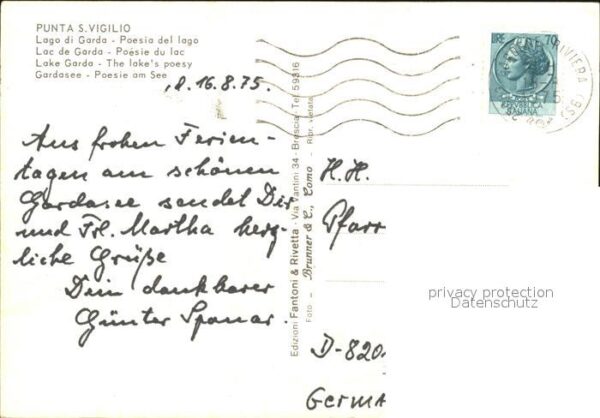 PUNTA S.VIGILIO
Lago di Garda - Poesia del lago
Lac de Garda - Poésie du lac
Lake Garda - The lake's poesy
Gardasee - Poesie am See
16.8.75.
Aus frohen Ferien-
tagen am schönen
Gardasee sendet Dir
und Frl. Martha herz-
liche Grüße
Dein dankbarer
Günter Sponar.
Edizioni Fantoni & Rivetta - Via Vantini 34 - Brescia - Tel. 59316
Foto - Brunner & C., Como - Ripr. vietata
LIRE 70
REPVBBLICA
ITALIANA
RIVIERA
H.H.
Pfarr
privacy protection
Datenschutz
D-820
Germa